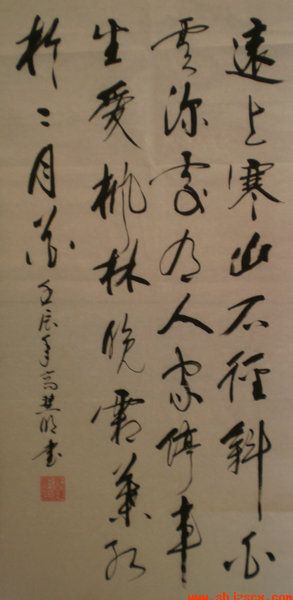 遠上寒山石徑斜白
雲深處有人家停車
坐愛楓林晚霜葉紅
於二月花
壬辰年高明书